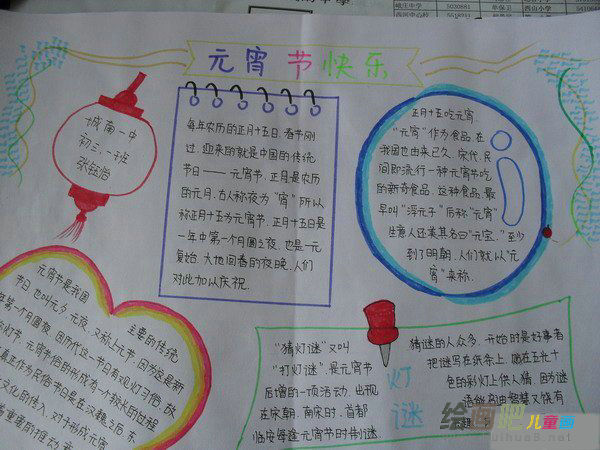 元宵节快乐
城南一中
初三.一班
每年农历的正月十五日,春节刚
过,迎来的就是中国的传统
节日——元宵节.正月是农历
的元月,古人称夜为“宵”所以
称正月十五为元宵节.正月十五日是
一年中第一个月圆之夜.也是一元
复始,大地回春的夜晚.人们
对此加以庆祝.
正月十五吃元宵.
“元宵”作为食品,在
我国也由来已久.宋代,民
间即流行一种元宵节吃
的新奇食品.这种食品,最
早叫“浮元子”后称“元宵”
生意人还美其名曰“元宝.”至少
到了明朝,人们就以“元
宵”来称.
元宵节是我国
主要的传统
节日,也叫元夕,元夜,又称上元节,因为这是新
年第一个月圆夜.因历代这一节日有观灯习俗,故
灯节.元宵节俗的形成有一个较长的过程
真正作为民俗节日是在汉魏之后.东
文化的传入,对于形成元宵
重要的推动
“猜灯谜”又叫
“打灯谜”.是元宵节
后增的一项活动,出现
在宋朝.南宋时,首都
临安每逢元宵节时制谜.
灯
谜
猜谜的人众多.开始时是好事者
把谜写在纸条上,贴在五光十
色的彩灯上供人猜.因为谜
语能启迪智慧又饶有
绘画吧
儿童画